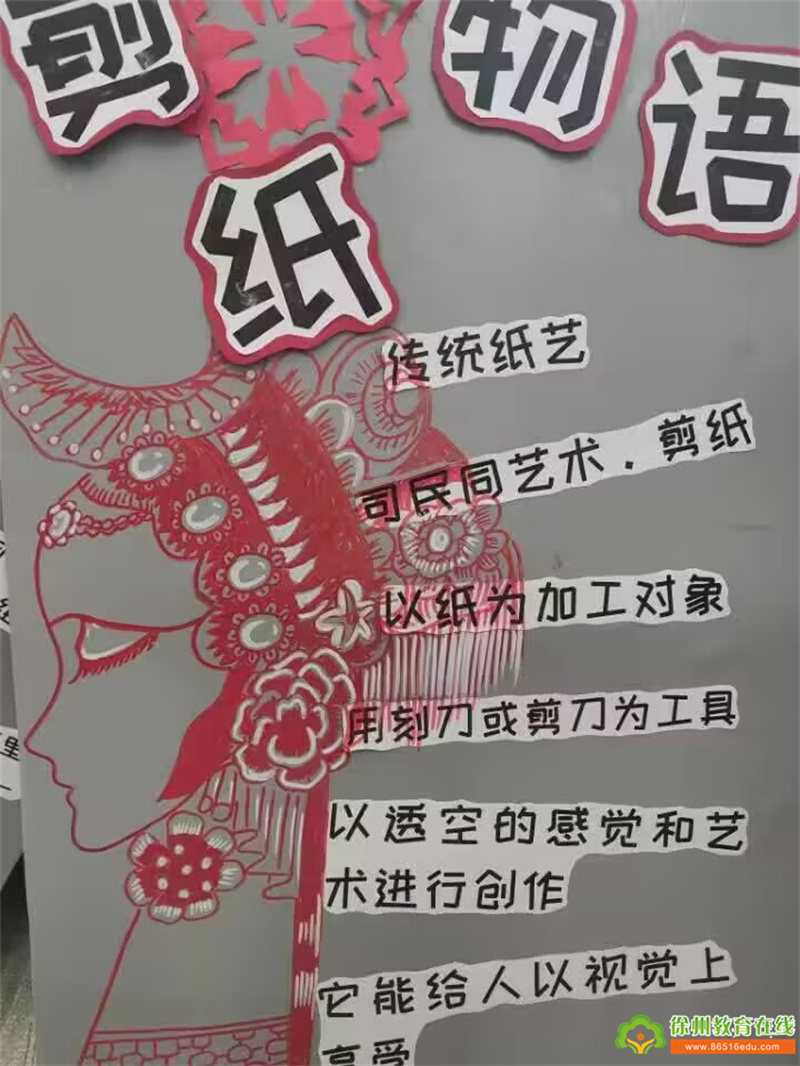 剪纸物语
传统纸艺
司民同艺术．剪纸
以纸为加工对象
用刻刀或剪刀为工具
以透空的感觉和艺
术进行创作
它能给人以视觉上
享受
里
徐州教育在线
www.86516edu.com